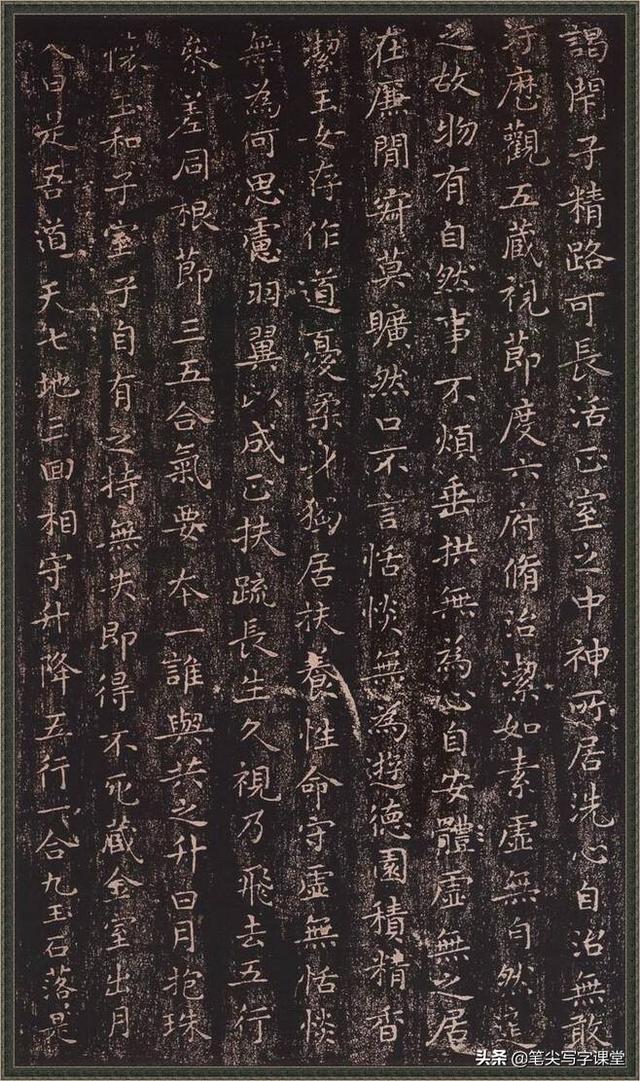 謁閉子精路可長活正室之中神所居洗心自治無敢
汙歷觀五藏視節度六府脩治潔如素虛無自然道
之故物有自然事不煩垂拱無為心自安體虛無之居
在廉間寂莫曠然口不言恬惔無為遊德園積精香
潔玉女存作道憂柔身獨居扶養性命守虛無恬惔
無為何思慮羽翼以成正扶疏長生久視乃飛去五行
參差同根節三五合氣要本一誰與共之升日月抱珠
懷玉和子室子自有之持無失即得不死藏金室出月
入日是吾道天七地三回相守升降五行一合九玉石落是
头条 @笔尖写字课堂